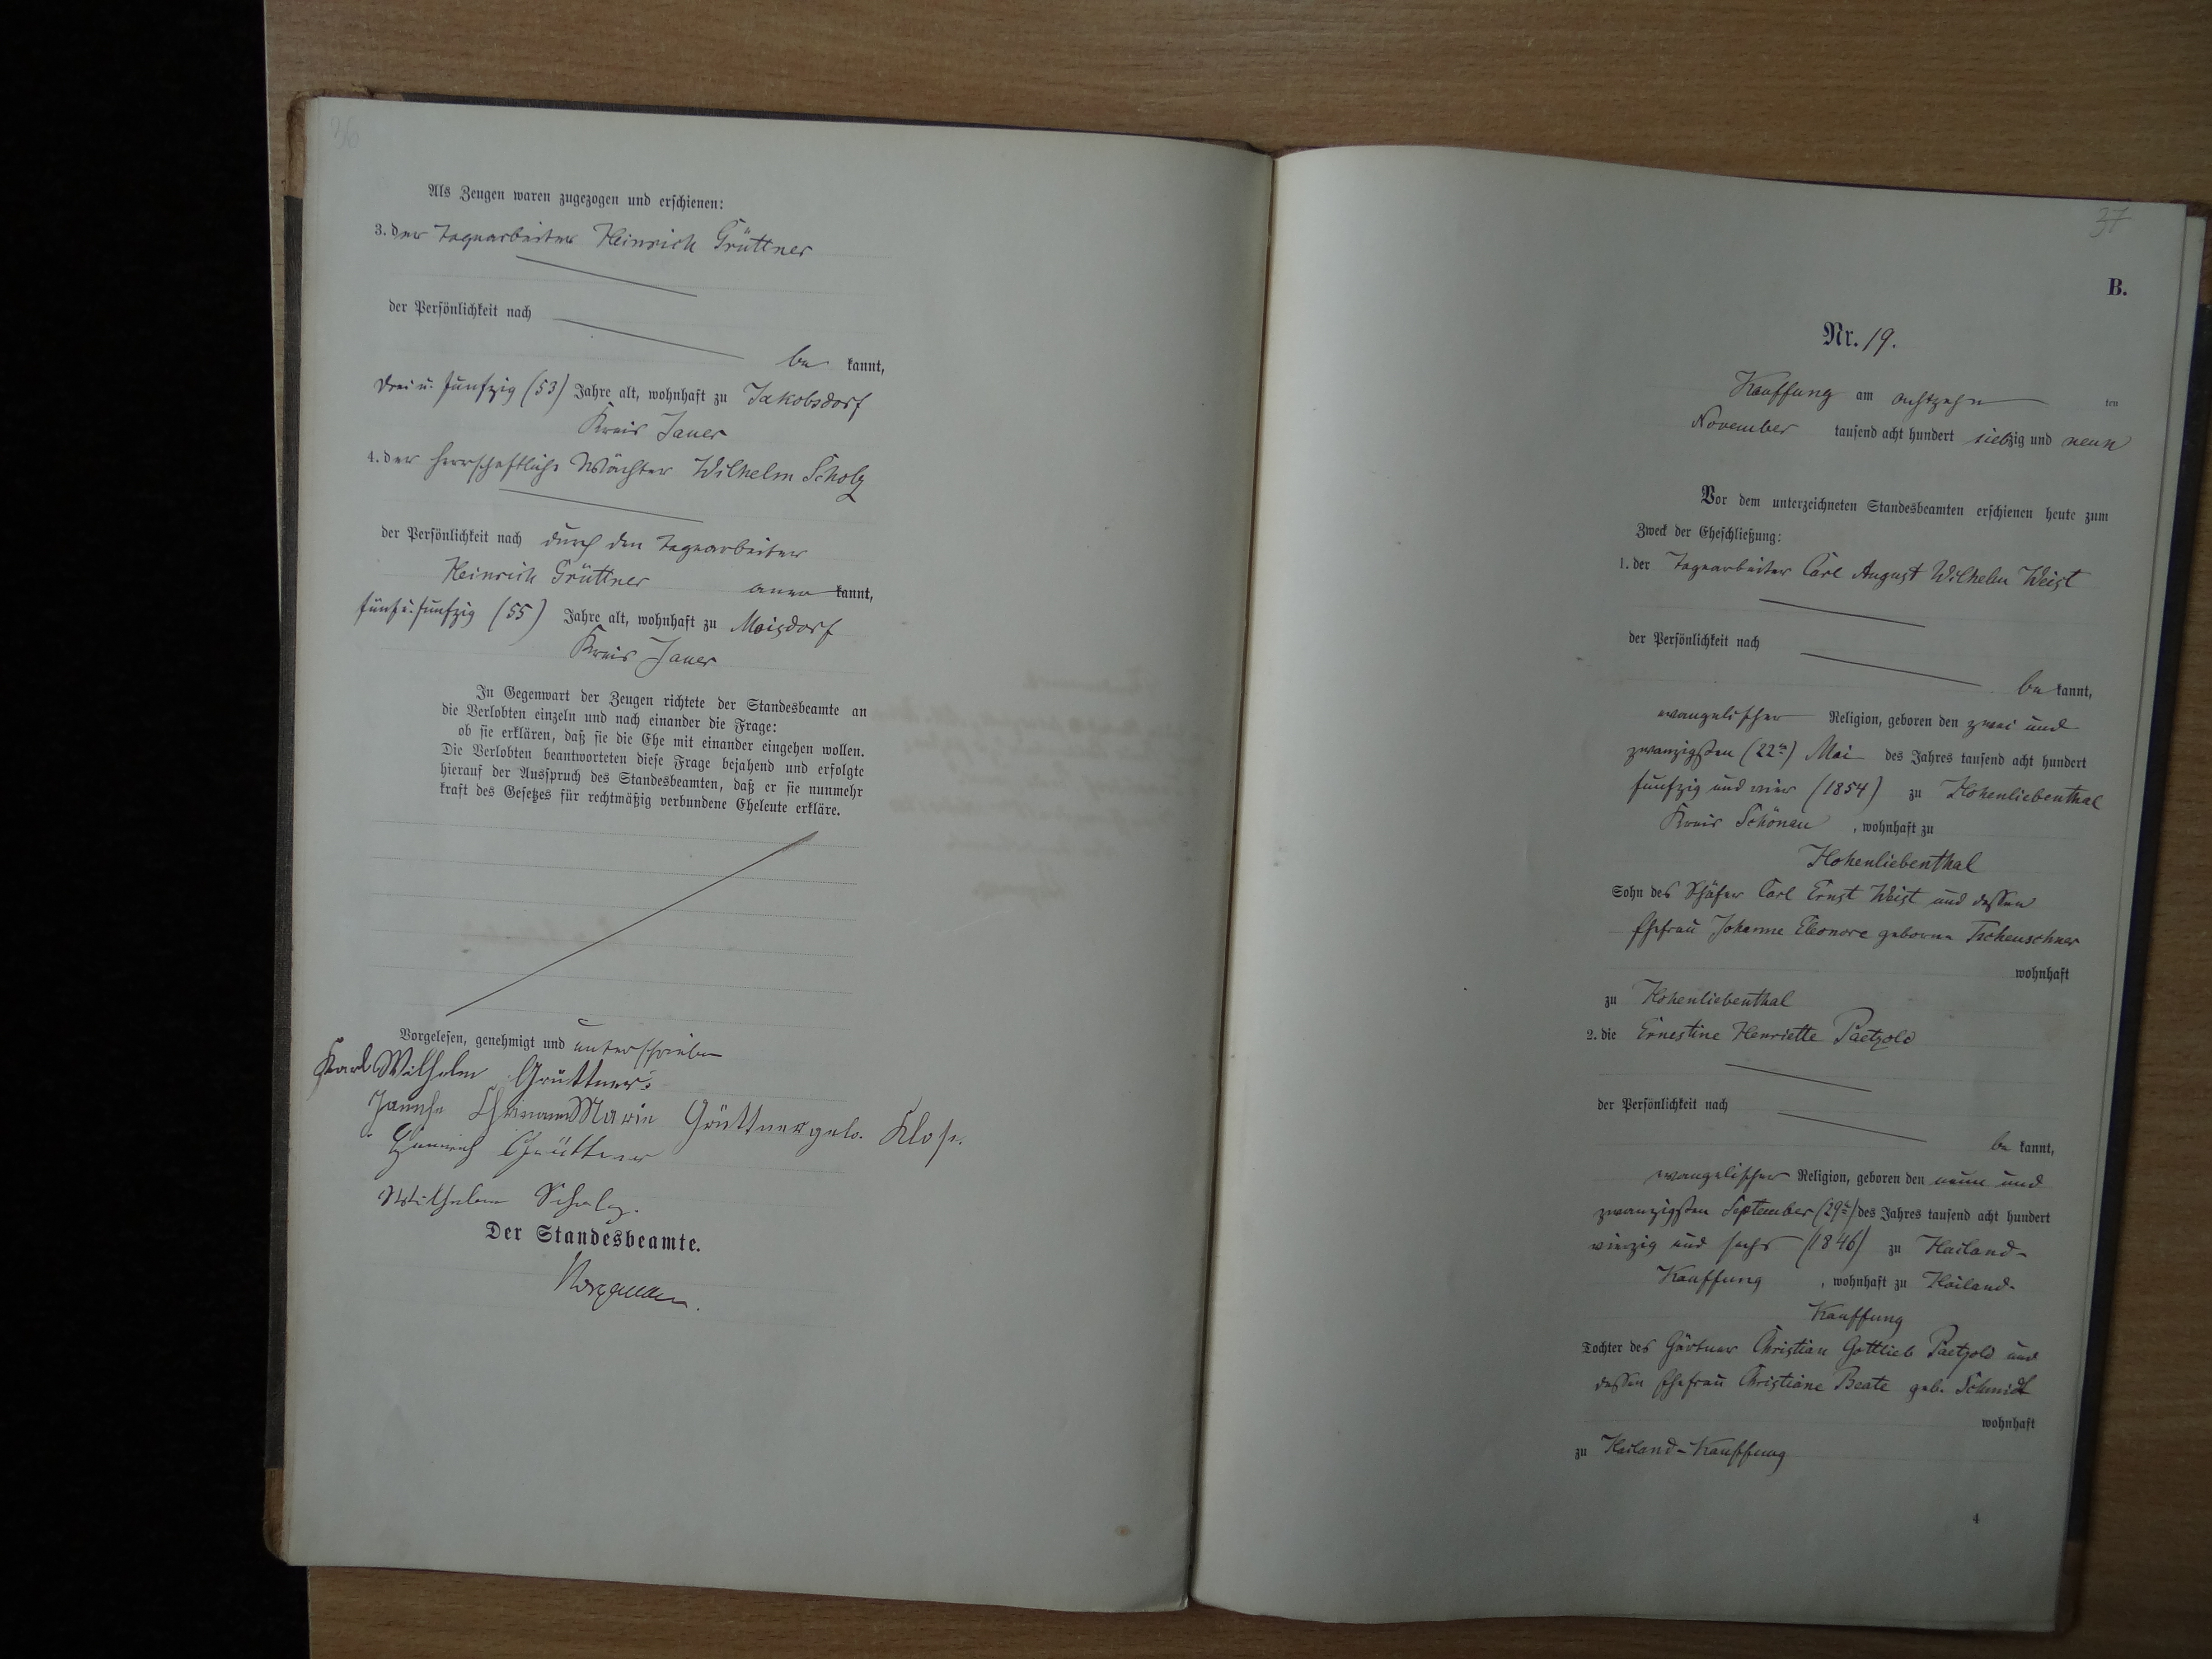 36
Als Zeugen waren zugezogen und erschienen:
3. der Tagearbeiter Heinrich Grüttner
der Persönlichkeit nach
be kannt,
drei u. funfzig (53) Jahre alt, wohnhaft zu Jakobsdorf
Kreis Jauer
4. der herrschaftliche Wächter Wilhelm Scholz
der Persönlichkeit nach durch den Tagearbeiter
Heinrich Grüttner aner kannt,
fünf u. funfzig (55) Jahre alt, wohnhaft zu Moisdorf
Kreis Jauer
In Gegenwart der Zeugen richtete der Standesbeamte an
die Verlobten einzeln und nach einander die Frage:
ob sie erklären, daß sie die Ehe mit einander eingehen wollen.
Die Verlobten beantworteten diese Frage bejahend und erfolgte
hierauf der Ausspruch des Standesbeamten, daß er sie nunmehr
kraft des Gesetzes für rechtmäßig verbundene Eheleute erkläre.
Vorgelesen, genehmigt und unterschrieben
Karl Wilhelm Grüttner
Marie Grüttner geb. Klose.
Heinrich Grüttner
Wilhelm Scholz.
Der Standesbeamte.
37
B.
Nr. 19.
Kauffung am achtzehn ten
November tausend acht hundert siebzig und neun
Vor dem unterzeichneten Standesbeamten erschienen heute zum
Zweck der Eheschließung:
1. der Tagearbeiter Carl August Wilhelm Weist
der Persönlichkeit nach
be kannt,
evangelischer Religion, geboren den zwei und
zwanzigsten (22ten) Mai des Jahres tausend acht hundert
funfzig und vier (1854) zu Hohenliebenthal
Kreis Schönau , wohnhaft zu
Hohenliebenthal
Sohn des Schäfer Carl Ernst Weist und dessen
Ehefrau Johanne Eleonore geborne Tscheuschner
wohnhaft
zu Hohenliebenthal
2. die Ernestine Henriette Paetzold
der Persönlichkeit nach
be kannt,
evangelischer Religion, geboren den neun und
zwanzigsten September (29ten) des Jahres tausend acht hundert
vierzig und sechs (1846) zu Heiland-
Kauffung , wohnhaft zu Heiland-
Kauffung
Tochter des Gärtner Christian Gottlieb Paetzold und
dessen Ehefrau Christiane Beate geb. Schmidt
wohnhaft
zu Heiland-Kauffung
4